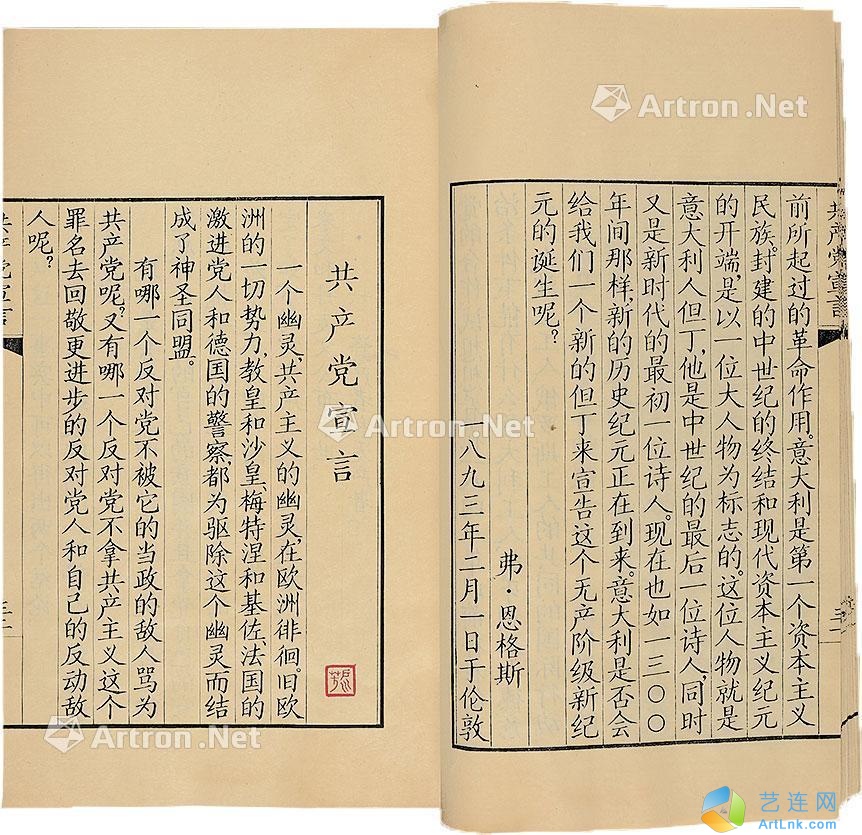 前所起过的革命作用。意大利是第一个资本主义
民族。封建的中世纪的终结和现代资本主义纪元
的开端,是以一位大人物为标志的。这位人物就是
意大利人但丁,他是中世纪的最后一位诗人,同时
又是新时代的最初一位诗人。现在也如一三〇〇
年间那样,新的历史纪元正在到来。意大利是否会
给我们一个新的但丁来宣告这个无产阶级新纪
元的诞生呢?
弗·恩格斯
一八九三年二月一日于伦敦
共产党宣言
一个幽灵,共产主义的幽灵,在欧洲徘徊。旧欧
洲的一切势力,教皇和沙皇、梅特涅和基佐、法国的
激进党人和德国的警察,都为驱除这个幽灵而结
成了神圣同盟。
有哪一个反对党不被它的当政的敌人骂为
共产党呢?又有哪一个反对党不拿共产主义这个
罪名去回敬更进步的反对党人和自己的反动敌
人呢?
共产党宣言
Artron.Net
Artron.Net
Artron.Net
Artron.Net
艺连网
ArtLnk.com